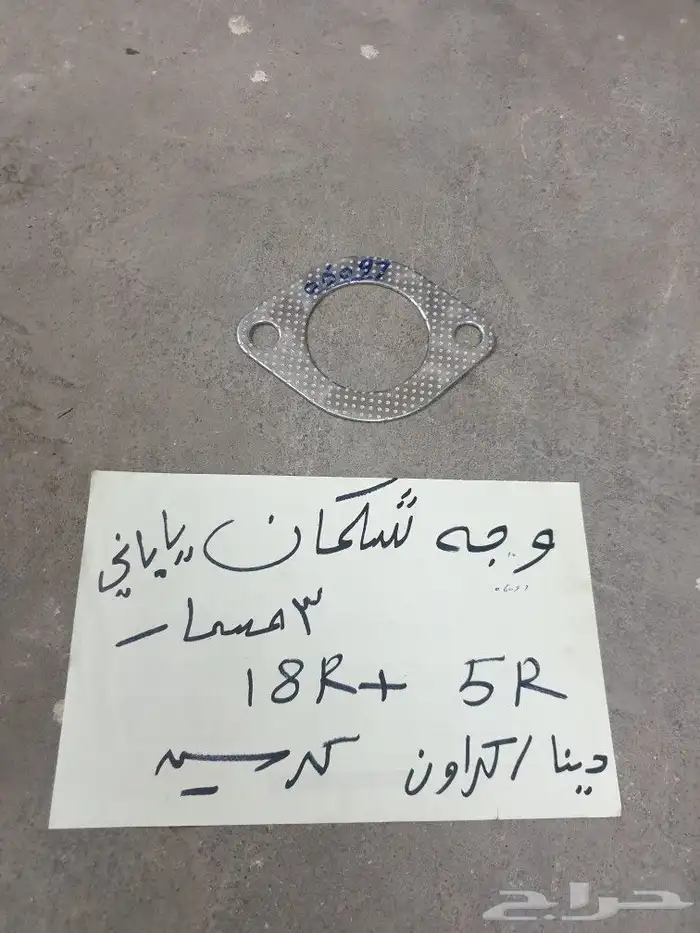 06097
وجه شكمان ياباني
06097
٣ مسمار
18R + 5R
دينا / كراون كرسيد
حراج